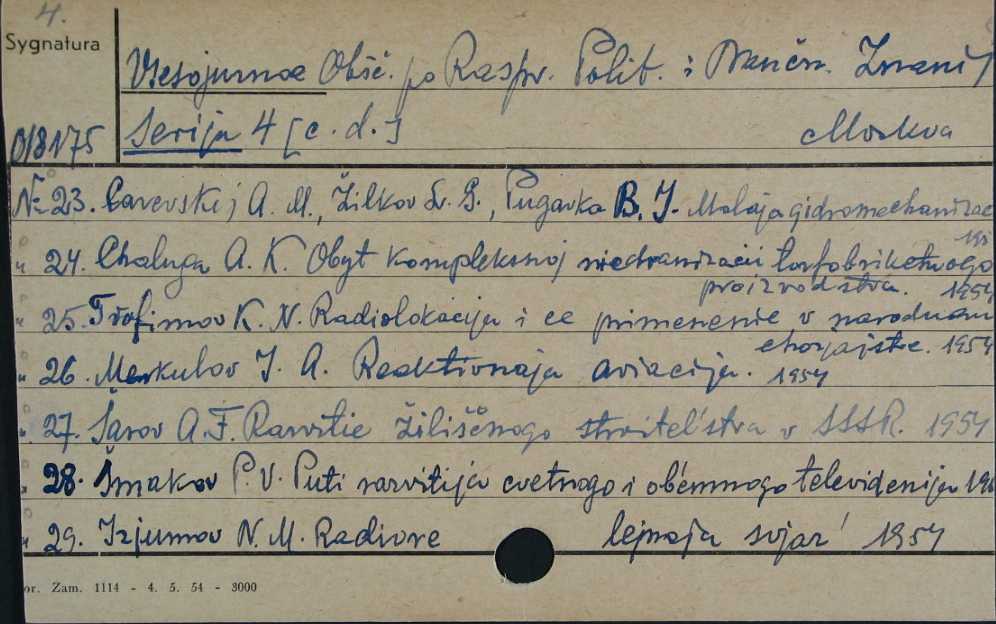 4.
Sygnatura
Vsesojuznoe Obšč. po Raspr. Polit. i Naučn. Znanij
Serija 4 [c. d.] Moskva
№ 23. Carevskij A. M., Žilkov S. G., Pugavko B. J. Malaja gidromechanizac
195
" 24. Chaluga A. K. Obyt kompleksnoj mechanizacii torfobriketnogo
proizvodstva. 1954
" 25. Trofimov K. N. Radiolokacija i ee primenenie v narodnom
chozjajstve. 1954
" 26. Merkulov J. A. Reaktivnaja aviacija. 1954
" 27. Šarov A. F. Razvitie žiliščnogo stroitel'stva v SSSR. 1954
" 28. Šmakov P. V. Puti razvitija cvetnogo i ob'emnogo televidenija 19
" 29. Izjumov N. M. Radiore lejnaja svjaz' 1954
or. Zam. 1114 - 4. 5. 54 - 3000